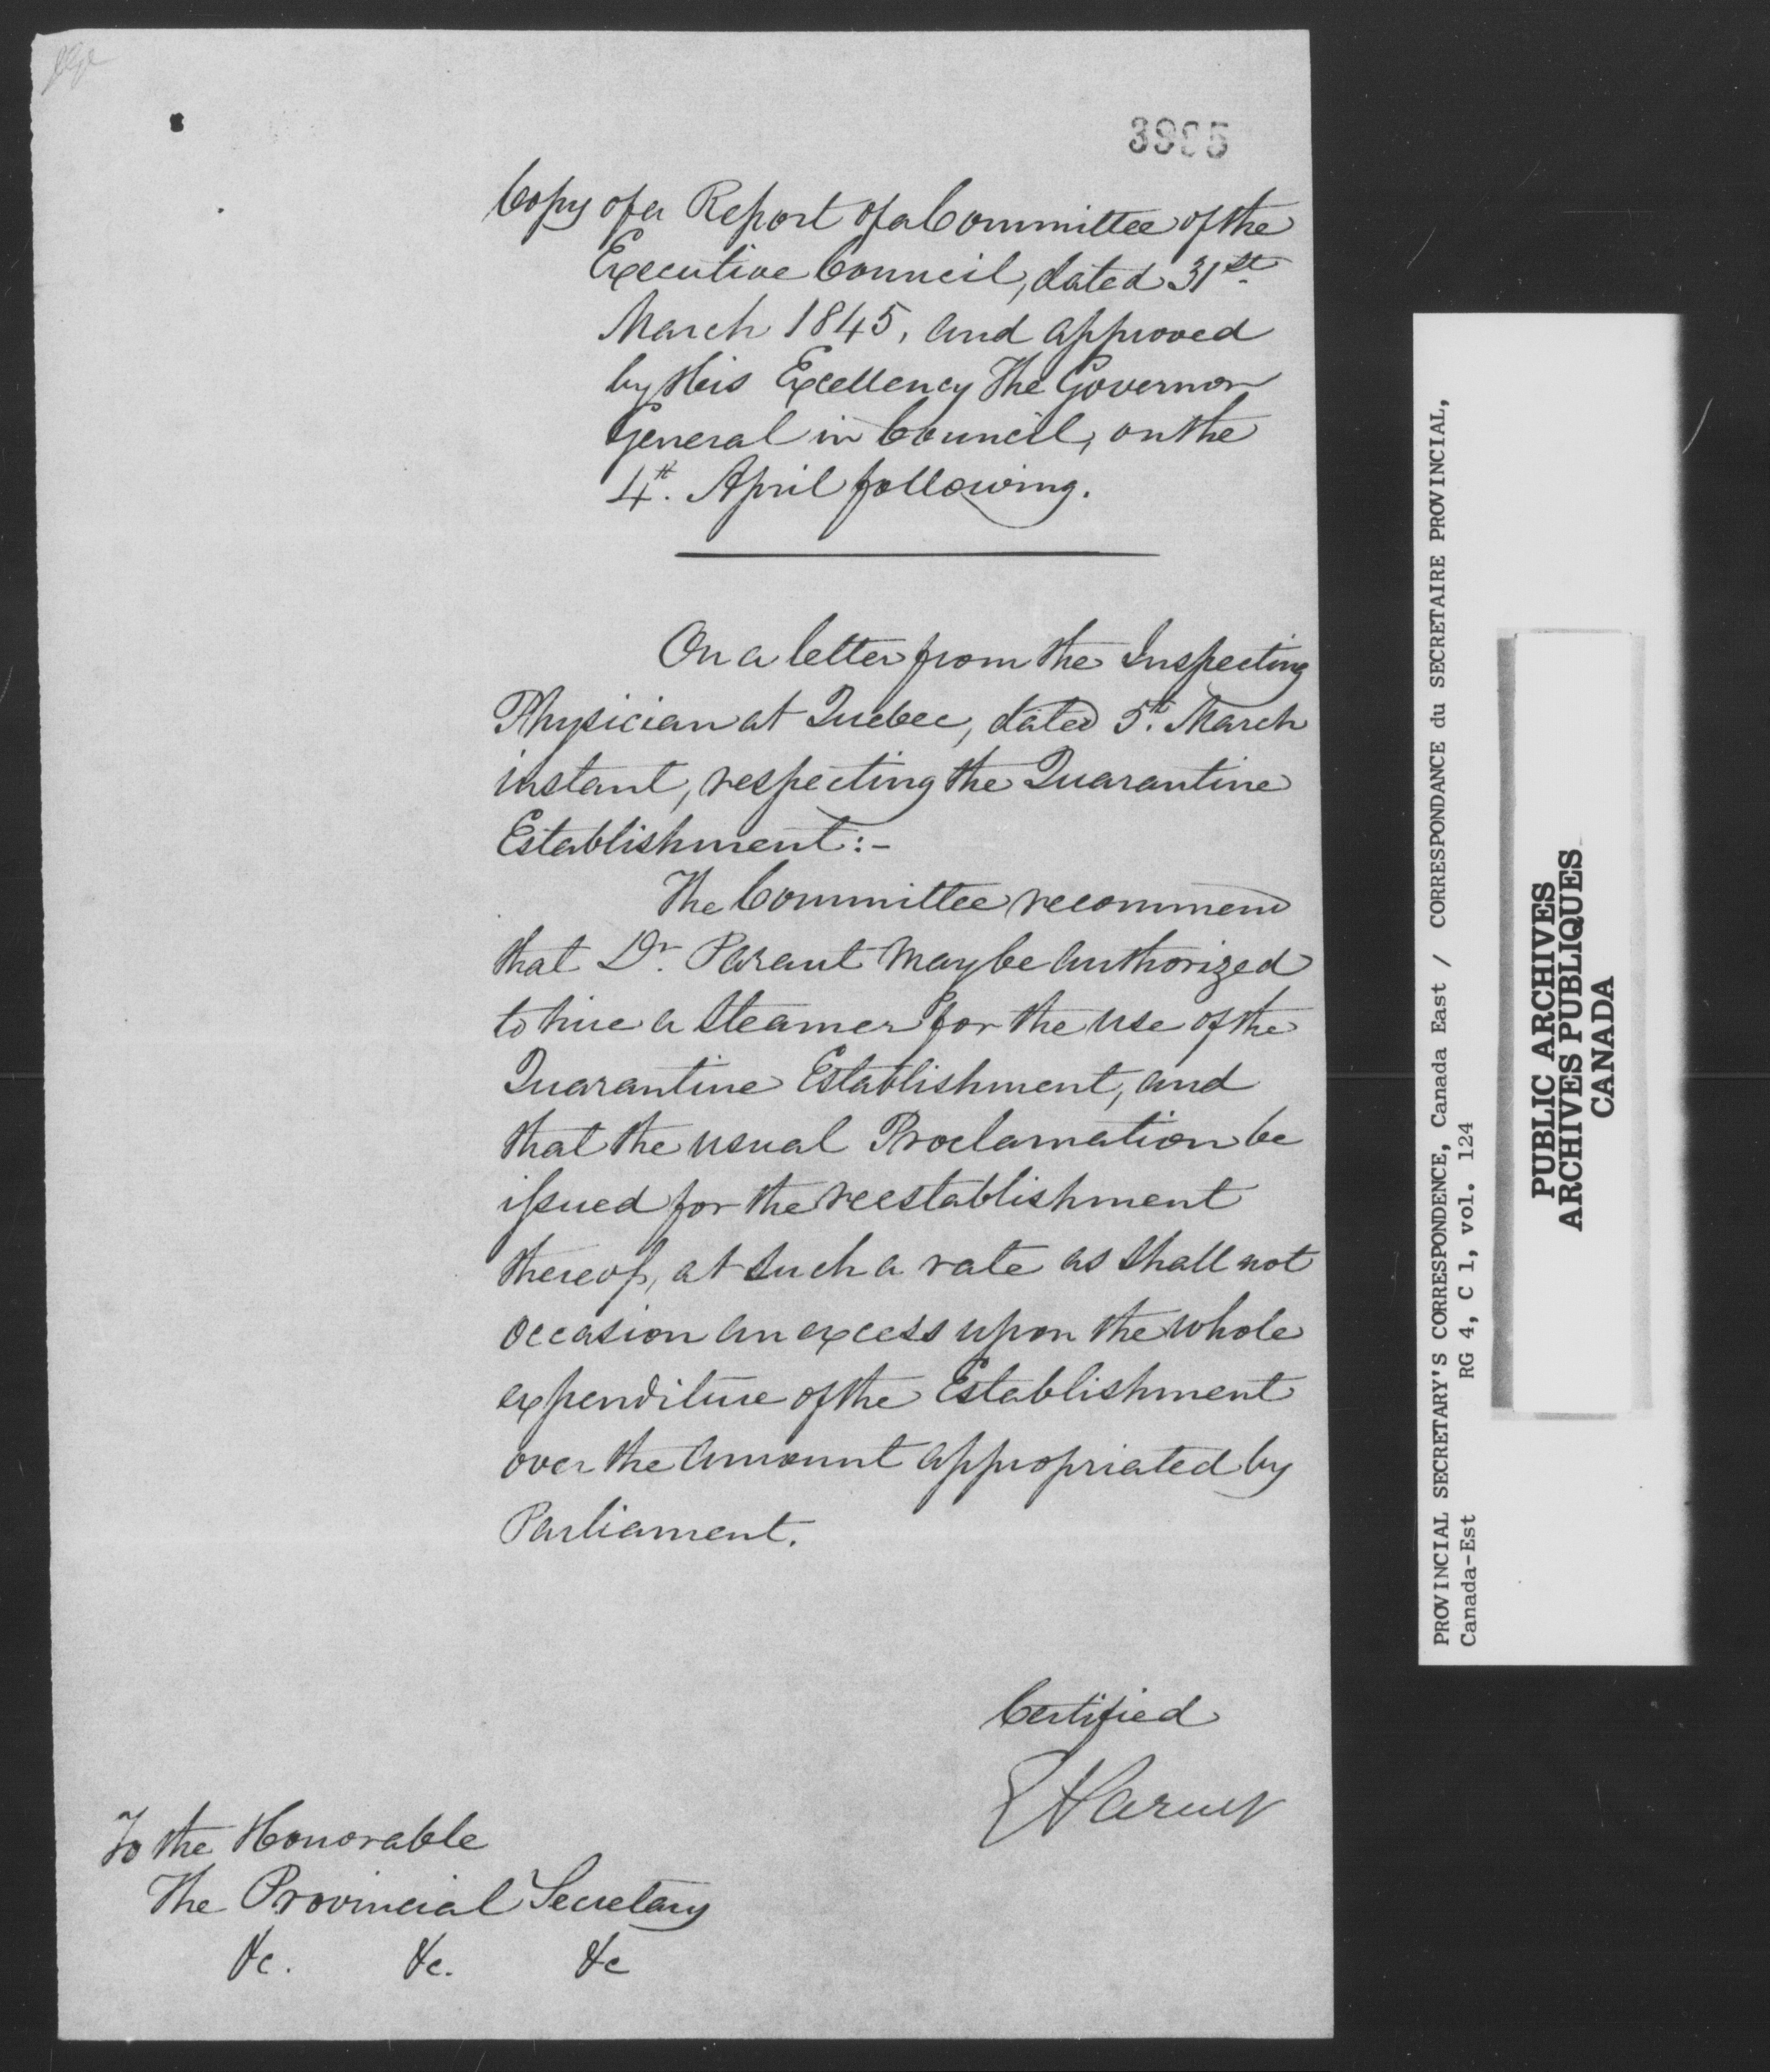 3995
Copy of a Report of a Committee of the
Executive Council, dated 31st
March 1845, and approved
by His Excellency The Governor
General in Council, on the
4th. April following.
On a letter from the Inspecting
Physician at Quebec, dated 5th. March
instant, respecting the Quarantine
Establishment:-
The Committee recommend
that Dr. Parant may be authorized
to hire a Steamer for the use of the
Quarantine Establishment, and
that the usual Proclamation be
issued for the reestablishment
thereof, at such a rate as shall not
occasion an excess upon the whole
expenditure of the Establishment
over the amount appropriated by
Parliament.
Certified
E Parent
To the Honorable
The Provincial Secretary
&c. &c. &c
PROVINCIAL SECRETARY'S CORRESPONDENCE, Canada East / CORRESPONDANCE du SECRETAIRE PROVINCIAL,
Canada-Est RG 4, C 1, vol. 124
PUBLIC ARCHIVES
ARCHIVES PUBLIQUES
CANADA